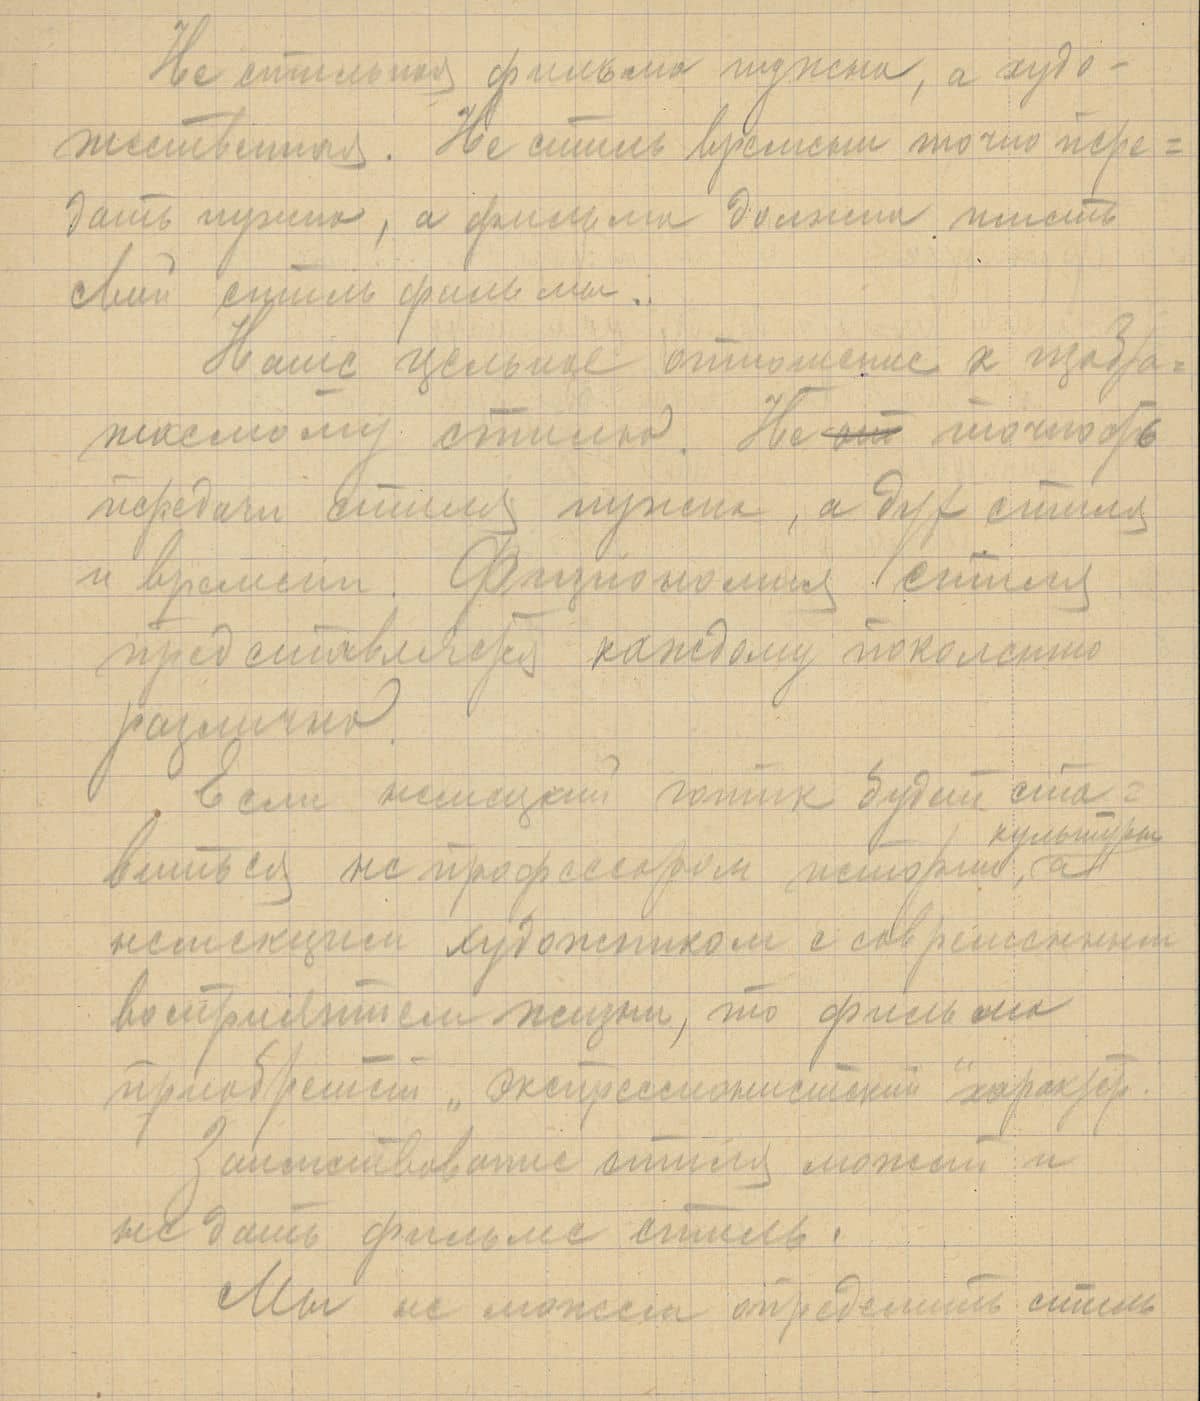 Не стильная фильма нужна, а худо-
жественная. Не стиль времени точно пере=
дать нужно, а фильма должна иметь
свой стиль фильмы.
Наше цельное отношение к изобра=
жаемому стилю. Не точность
передачи стиля нужна, а дух стиля
и времени. Физиономия стиля
представляется каждому поколению
различно.
Если немецкий готик будет ста=
виться не профессором истории культуры, а
немецким художником с современным
восприятием жизни, то фильма
приобретет „экспрессионистский“ характер.
Заимствование стиля может и
не дать фильме стиль.
Мы не можем определить стиль